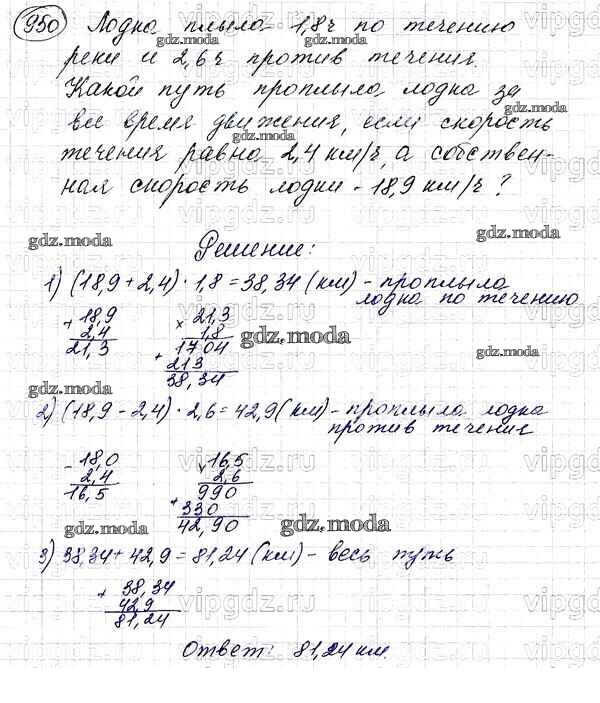 950 Лодка плыла 1,8ч по течению
реки и 2,6ч против течения.
Какой путь проплыла лодка за
все время движения, если скорость
течения равна 2,4 км/ч, а собствен-
ная скорость лодки - 18,9 км/ч?
Решение:
1) (18,9 + 2,4) · 1,8 = 38,34 (км) - проплыла
лодка по течению
+ 18,9
2,4
21,3
× 21,3
1,8
1704
+ 213
38,34
2) (18,9 - 2,4) · 2,6 = 42,9 (км) - проплыла лодка
против течения
- 18,0
2,4
16,5
× 16,5
2,6
990
+ 330
42,90
3) 38,34 + 42,9 = 81,24 (км) - весь путь
+ 38,34
42,9
81,24
Ответ: 81,24 км.
gdz.moda
vipgdz.ru